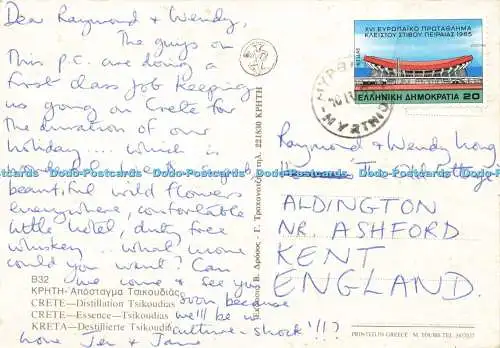 Dear Raymond & Wendy,
The guys on
this p.c. are doing a
first class job keeping
us going on Crete for
the duration of our
holiday... which is
beautiful wild flowers
everywhere, comfortable
little hotel, duty free
whiskey... what more
could you want? Can
we come & see you
soon because
we'll be in
culture-shock!!?
Love Jen & Jane
B32
ΚΡΗΤΗ-Αποσταγμα Τσικουδιάς
CRETE—Distillation Tsikoudias
CRETE—Essence—Tsikoudias
KRETA—Destillierte Tsikoudia
221830 ΚΡΗΤΗ
XVI ΕΥΡΩΠΑΪΚΟ ΠΡΩΤΑΘΛΗΜΑ
ΚΛΕΙΣΤΟΥ ΣΤΙΒΟΥ ΠΕΙΡΑΙΑΣ 1985
ΕΛΛΗΝΙΚΗ ΔΗΜΟΚΡΑΤΙΑ 20
Raymond & Wendy Long
Cottage
ALDINGTON
NR. ASHFORD
KENT
ENGLAND.
PRINTED IN GREECE
Dodo-Postcards